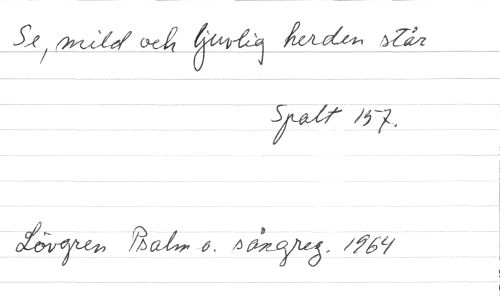 Se, mild och ljuvlig herden står
Spalt 157.
Lövgren Psalm o. sångreg. 1964